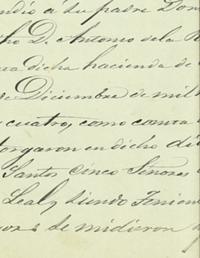 endió a su padre Don
cho D. Antonio de la R
esa dicha hacienda de
de Diciembre de mil
y cuatro, como consta
torgaron en dicho di
Santos Cinco Señores
Leal, siendo Tenien
se midieron